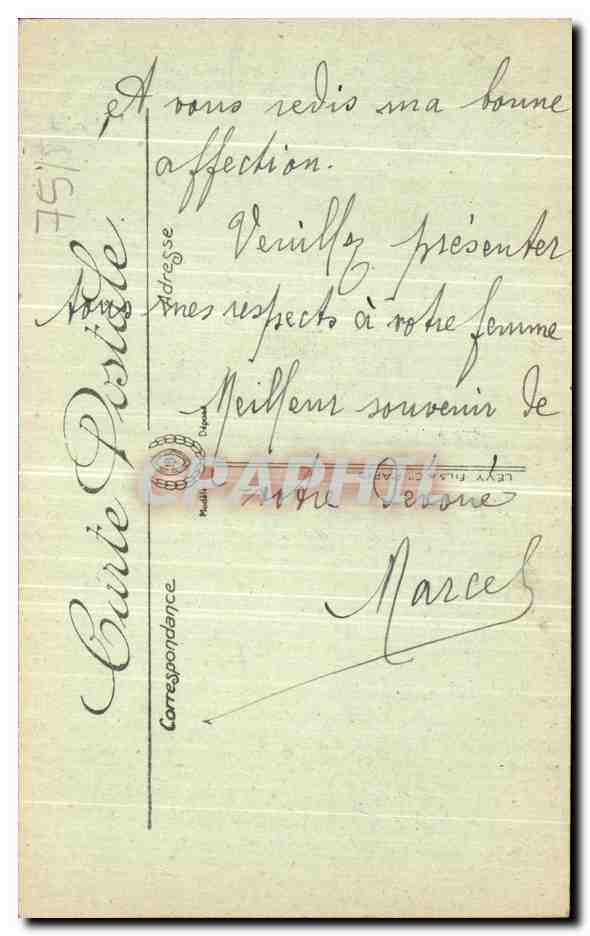 et vous redis ma bonne
affection.
Veuillez présenter
tous mes respects à votre femme
Meilleur souvenir de
votre Dévoué
Marcel
Carte Postale
Adresse
Correspondance
Modèle Déposé
LEVY FILS & Cie PARIS
CPAPHIL
75